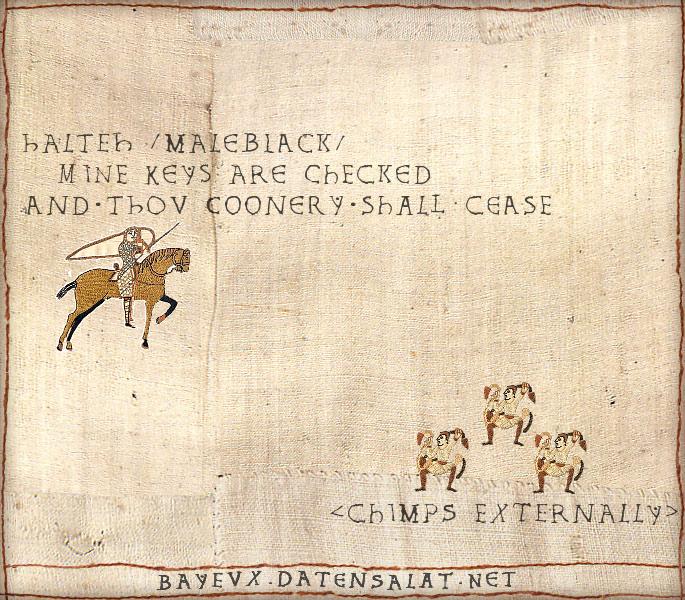 hALTEh /MALEBLACK/
MINE KEYS ARE ChECKED
AND·ThOV COONERY·ShALL·CEASE
<ChIMPS EXTERNALLY>
BAYEVX·DATENSALAT·NET